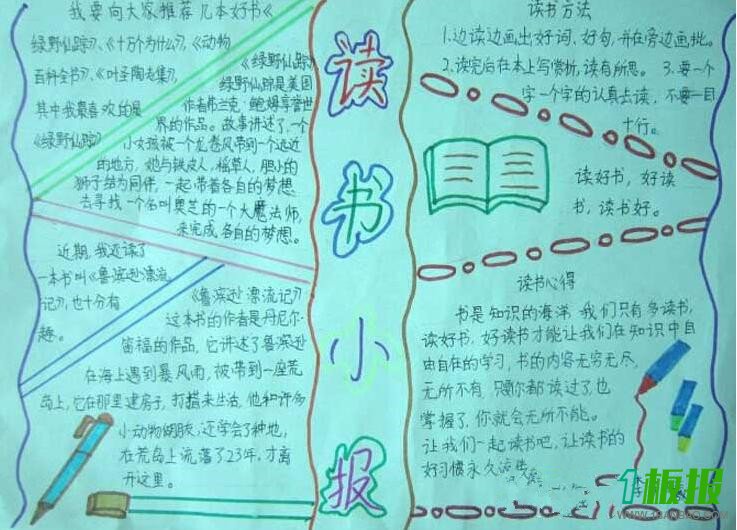 我要向大家推荐几本好书《
绿野仙踪》、《十万个为什么》、《动物
百科全书》、《叶圣陶专集》,
其中我最喜欢的是
《绿野仙踪》
《绿野仙踪》
绿野仙踪是美国
作者弗兰克·鲍姆享誉世
界的作品。故事讲述了,一个
小女孩被一个龙卷风带到一个遥远
的地方,她与铁皮人,稻草人,胆小的
狮子结为同伴,一起带着各自的梦想
去寻找一个名叫奥芝的一个大魔法师,
来完成各自的梦想。
近期,我还读了
一本书叫《鲁滨逊漂流
记》,也十分有
趣。
《鲁滨逊漂流记》
这本书的作者是丹尼尔·
笛福的作品,它讲述了鲁滨逊
在海上遇到暴风雨,被带到一座荒
岛上,它在那里建房子,打猎来生活,他和许多
小动物做朋友,还学会了种地,
在荒岛上流落了23年,才离
开这里。
读
书
小
报
读书方法
1.边读边画出好词、好句,并在旁边画批。
2.读完后在本上写赏析,读有所思。 3.要一个
字一个字的认真去读,不要一目
十行。
读好书,好读
书,读书好。
读书心得
书是知识的海洋,我们只有多读书,
读好书,好读书才能让我们在知识中自
由自在的学习,书的内容无穷无尽,
无所不有,只要你都读过了,也
掌握了,你就会无所不能。
让我们一起读书吧,让读书的
好习惯永久流传
板报